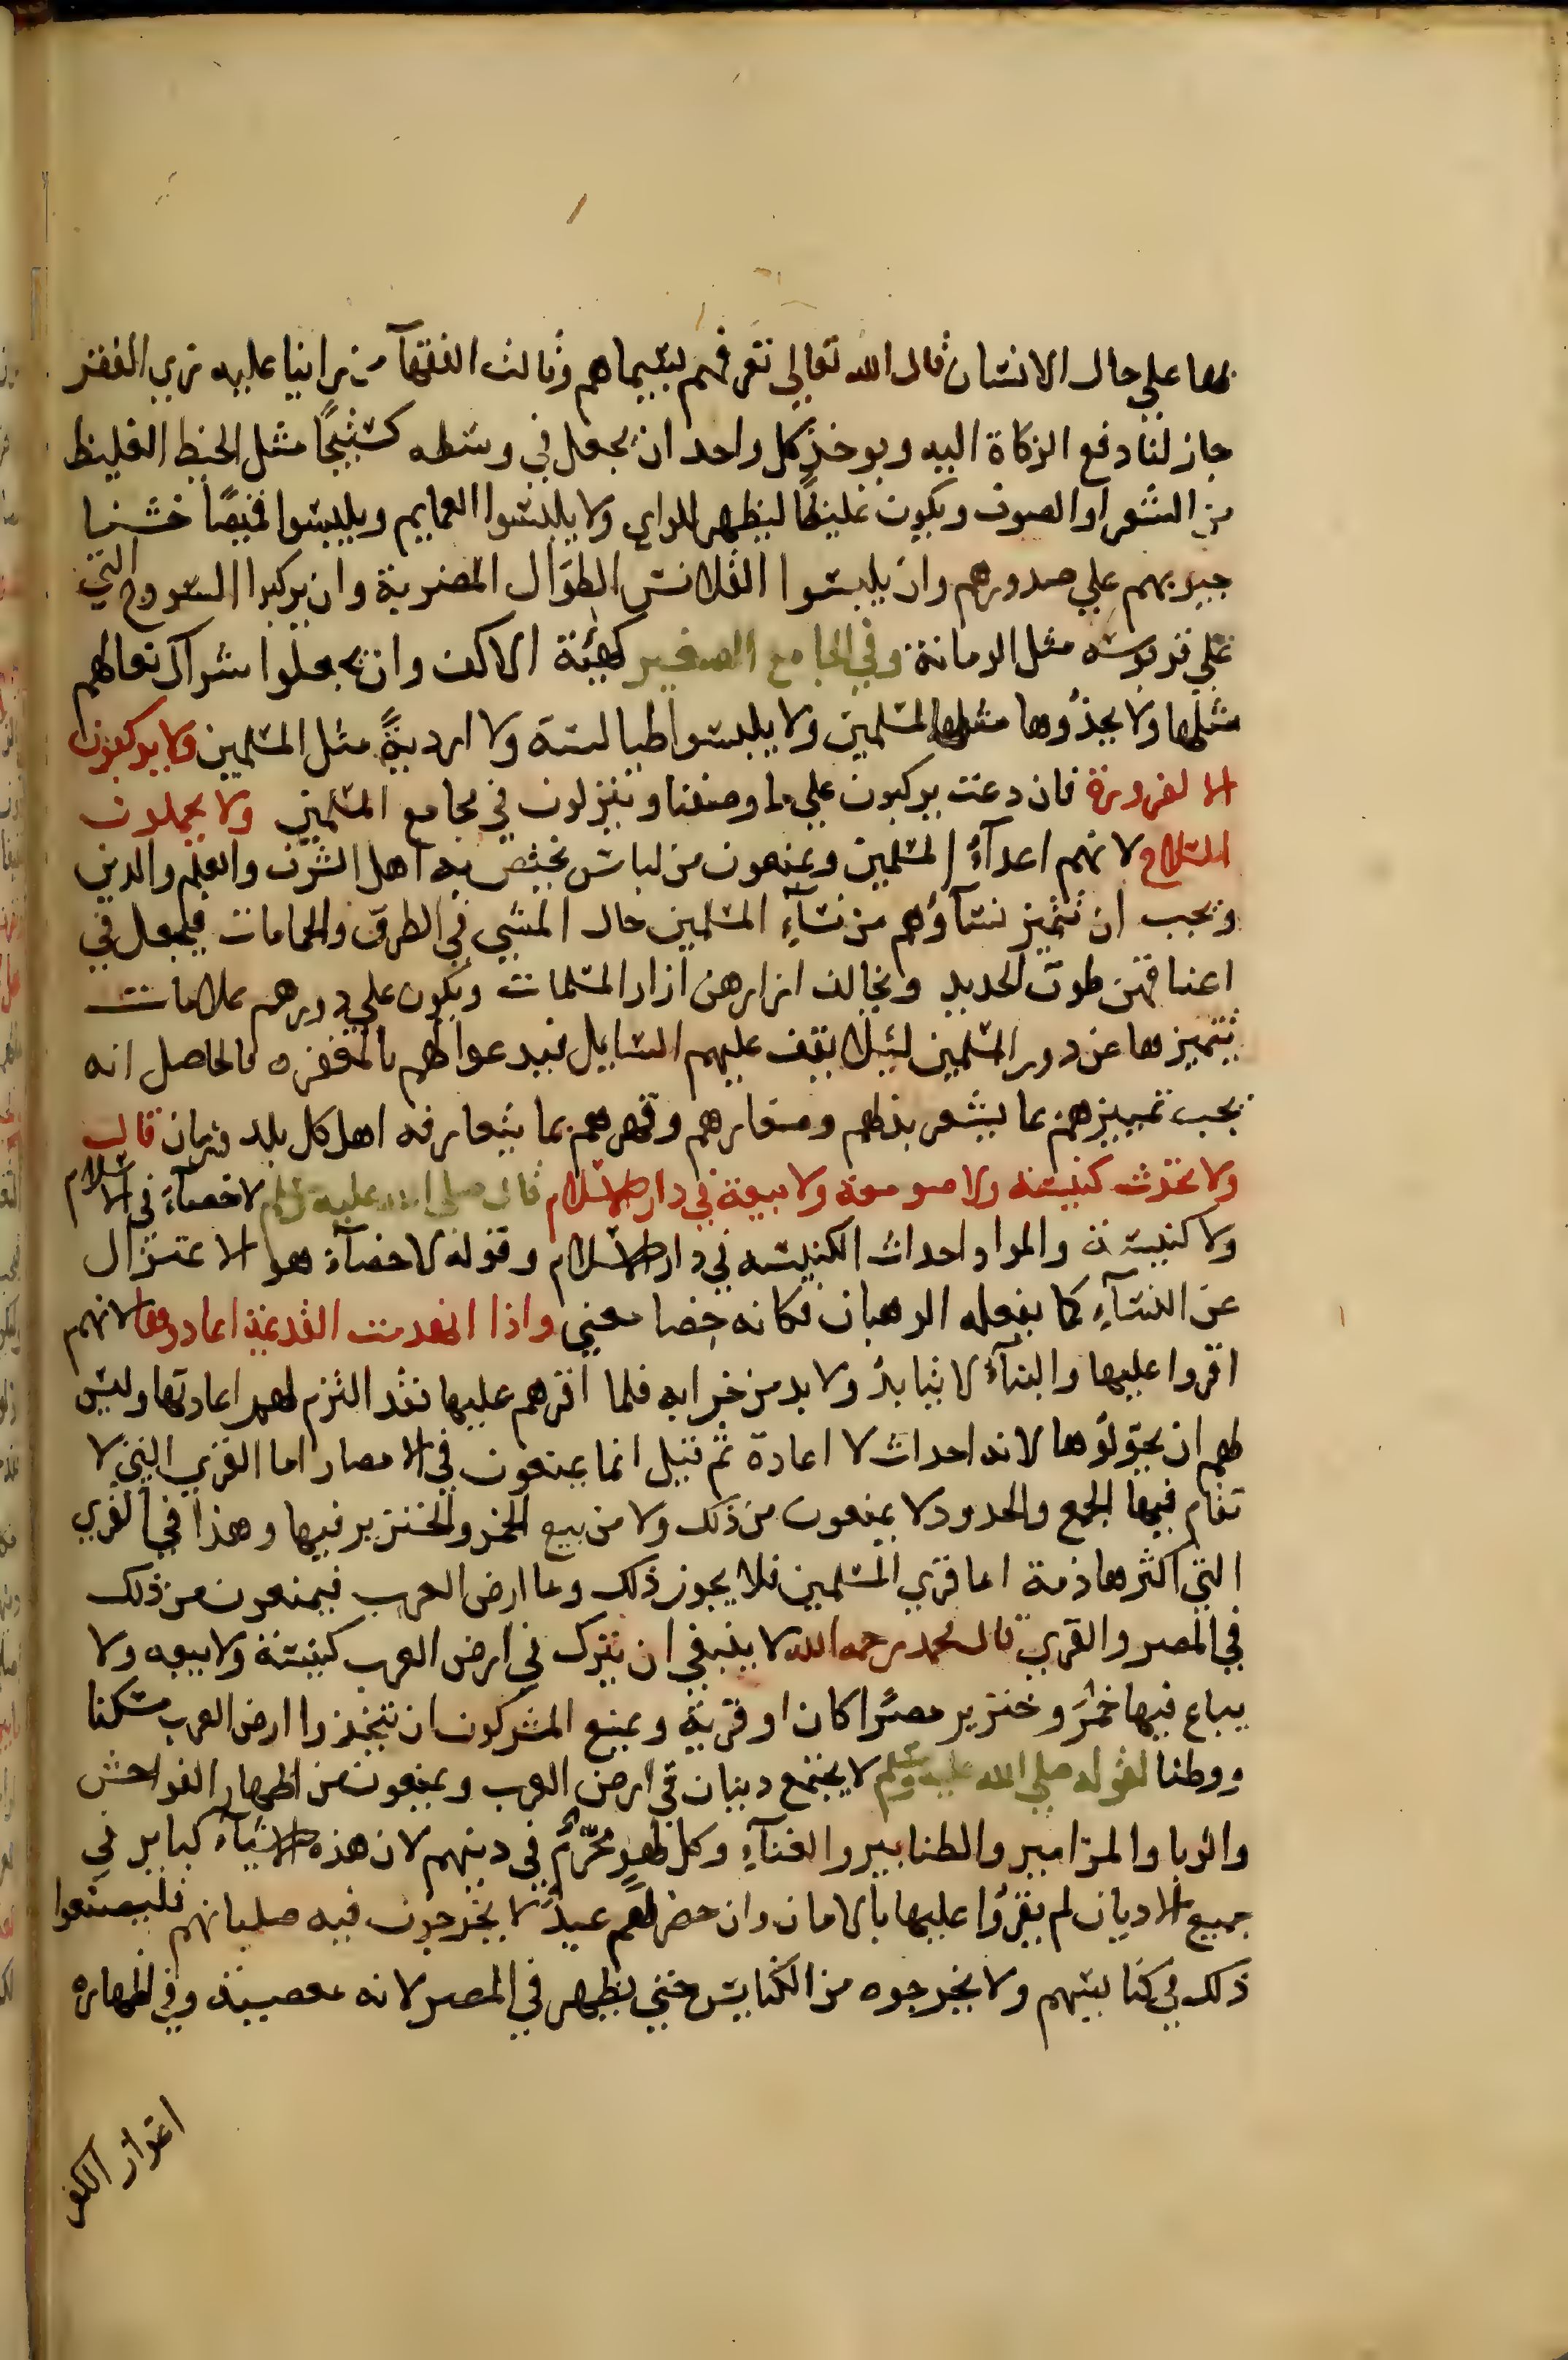 بها علي حال الانسان قال الله تعالي تعرفهم بسيماهم وقالت الفقهآ من راينا عليه زي الفقر
جاز لنا دفع الزكاة اليه ويوخذ كل واحد ان يجعل في وسطه كستيجًا مثل الخيط الغليظ
من الشعر او الصوف ويكون غليظًا ليظهر للراي ولا يلبسوا العمايم ويلبسوا قميصًا خشنا
جيوبهم علي صدورهم وان يلبسوا القلانس الطوال المضربة وان يركبوا السروج التي
علي قربوسه مثل الرمانة وفي الجامع الصغير كهيئة الاكف وان يجعلوا شراك نعالهم
مثلها ولا يحذوها مثل المسلمين ولا يلبسوا طيالسة ولا ارديةً مثل المسلمين ولا يركبون
الا لضرورة فان دعت يركبون علي ما وصفنا وينزلون في مجامع المسلمين ولا يحملون
السلاح لانهم اعدآءُ المسلمين ويمنعون من لباس يختص به اهل الشرف والعلم والدين
ويجب ان تتميز نسآؤهم من نسآءِ المسلمين حال المشي في الطرق والحمامات فيجعل في
اعناقهن طوق الحديد ويخالف ازارهن ازار المسلمات ويكون علي دورهم علامات
تتميز بها عن دور المسلمين ليلا يقف عليهم السايل فيدعوا لهم بالمغفره فالحاصل انه
يجب تمييزهم بما يشعر بذلهم وصغارهم وقهرهم بما يتعارفه اهل كل بلد وزمان قال
ولا تحدث كنيسه ولا صومعة ولا بيعة في دار الاسلام قال صلي الله عليه وسلم لا خصآء في الاسلام
ولا كنيسة والمراد احداث الكنيسه في دار الاسلام وقوله لا خصآء هو الاعتزال
عن النسآءِ كما يفعله الرهبان فكانه خصا معني واذا انهدمت القديمة اعادوها لانهم
اقروا عليها والبنآءُ لا يتابدُ ولا بد من خرابه فلما اقرهم عليها فقد التزم لهم اعادتها وليس
لهم ان يحولوها لانه احداث لا اعادة ثم قيل انما يمنعون في الامصار اما القري التي لا
تقام فيها الجمع والحدود لا يمنعون من ذلك ولا من بيع الخمر والخنزير فيها وهذا في القري
التي اكثرها ذمة اما قري المسلمين فلا يجوز ذلك واما ارض العرب فيمنعون من ذلك
في المصر والقري قال محمد رحمه الله لا ينبغي ان يترك في ارض العرب كنيسة ولا بيعه ولا
يباع فيها خمرَ وخنزير مصرًا كان او قريةً ويمنع المشركون ان يتخذوا ارض العرب مسكنا
ووطنا لقوله صلي الله عليه وسلم لا يجتمع دينان في ارض العرب ويمنعون من اظهار الفواحش
والربا والمزامير والطنابير والغنآءِ وكل لهوٍ محرّمٌ في دينهم لان هذه الاشيآء كباير في
جميع الاديان لم يقرُوا عليها بالامان وان حضر لهم عيدٌ لا يخرجون فيه صلبانهم فليصنعوا
ذلك في كنايسهم ولا يخرجوه من الكنايس حتي يظهر في المصر لانه معصية وفي اظهاره
اعزاز الكفر